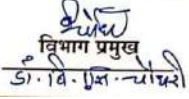 विभाग प्रमुख
डॉ. वि. एल. चौधरी